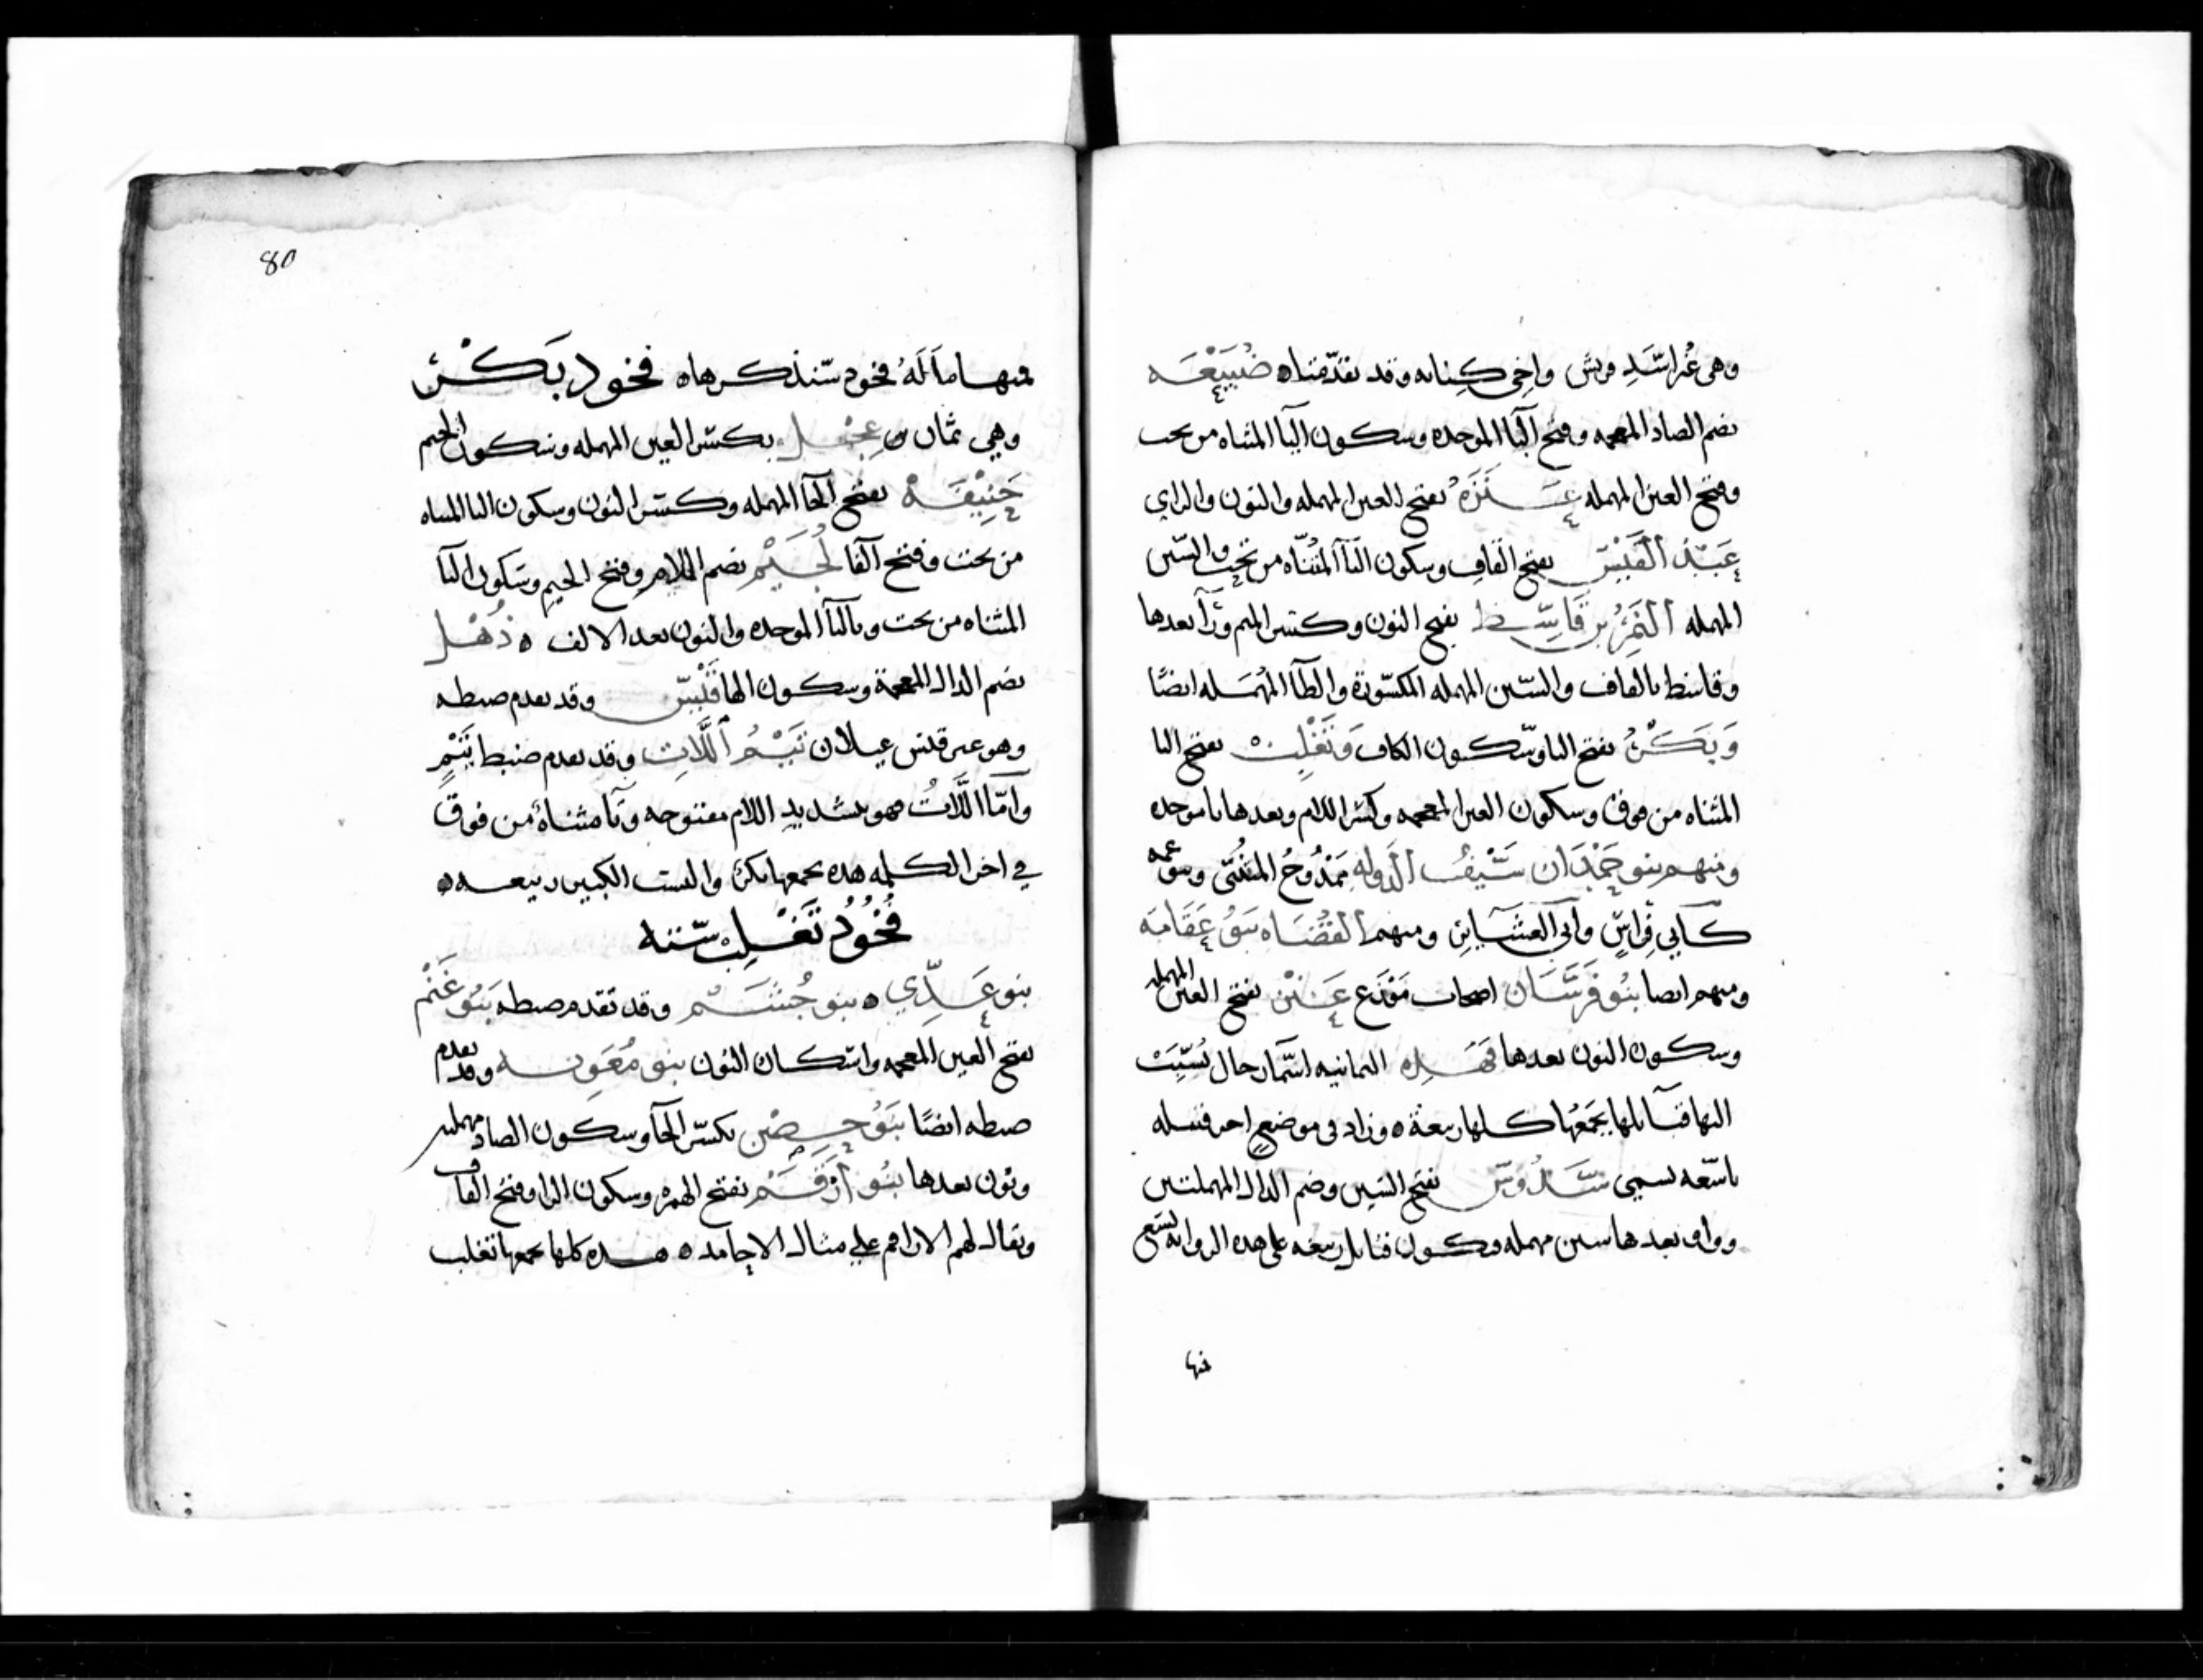 وهي غير اسد قريش واخى كنانه وقد تقدمتاه ضُبَيْعَه
بضم الضاد المعجمه وفتح البا الموحده وسكون اليا المثناه من تحت
وفتح العين المهمله عَنَزَهُ بفتح العين المهمله والنون والزاي
عَبْدُ القَيْسِ بفتح القاف وسكون اليا المثناه من تحت والسين
المهمله النَمِرُ بن قَاسِط بفتح النون وكسر الميم ورآ بعدها
وقاسط بالقاف والسين المهمله المكسورة والطآ المهمله ايضًا
وَبَكْرُ بفتح البا وسكون الكاف وَتَغْلِبُ بفتح التا
المثناه من فوق وسكون الغين المعجمه وكسر اللام وبعدها با موحده
ومنهم بنو حَمْدَان سَيْفُ الدوله مَمْدُوحُ المتنبّى وبنو عمه
كأبي فِراسٍ وأبي العشآيرِ ومنهم القضاه بنو عَقَامَه
ومنهم ايضا بنُو فَرَسَان اصحاب مَوْزَع عَنْز بفتح العين المهمله
وسكون النون بعدها فهذه الثمانيه اسمآ رجال نُسِبَتْ
اليها قبآئلها يجمَعُها كلها ربيعة ٥ وزاد في موضعٍ اخر قبيله
تاسعه تسمى سَدُوسَ بفتح السين وضم الدال المهملتين
وواو بعدها سين مهمله وتكون قبايل ربيعه على هذه الروايه تسع
منها
80
منها ما لَهُ فخود سنذكرها ٥ فخود بَكْرٍ
وهي ثمان ٥ عِجْل بكسر العين المهمله وسكون الجيم
حَنِيْفَهْ بفتح الحآ المهمله وكسر النون وسكون اليا المثناه
من تحت وفتح الفآ لُجَيْم بضم اللام وفتح الجيم وسكون اليآ
المثناه من تحت وبالبآ الموحده والنون بعد الالف ٥ ذُهْل
بضم الذال المعجمة وسكون الها قَيْسٌ وقد تقدم ضبطه
وهو غير قيس عيلان تَيْمُ اللَّاتِ وقد تقدم ضبط تَيْمٍ
وامّا اللَّاتُ فهو بتشديد اللام مفتوحه وتآ مثناة من فوق
في اخر الكلمه هذه يجمعها بكر والبيت الكبير ربيعه ٥
فُخُوُدُ تَغْلِب سته
بنو عَدِّي ٥ بنو جُشَم وقد تقدم ضبطه بَنُو غَنْم
بفتح الغين المعجمه واسكان النون بنو مُعَوِيَه وقد تقدم
ضبطه ايضًا بَنُو حِصْن بكسر الحآ وسكون الصاد مهملتين
ونون بعدها بنُو أَرْقَم بفتح الهمزه وسكون الرا وفتح القاف
ويقال لهم الاراقم علي مثال الاجامد ٥ هذه كلها يجمعها تغلب